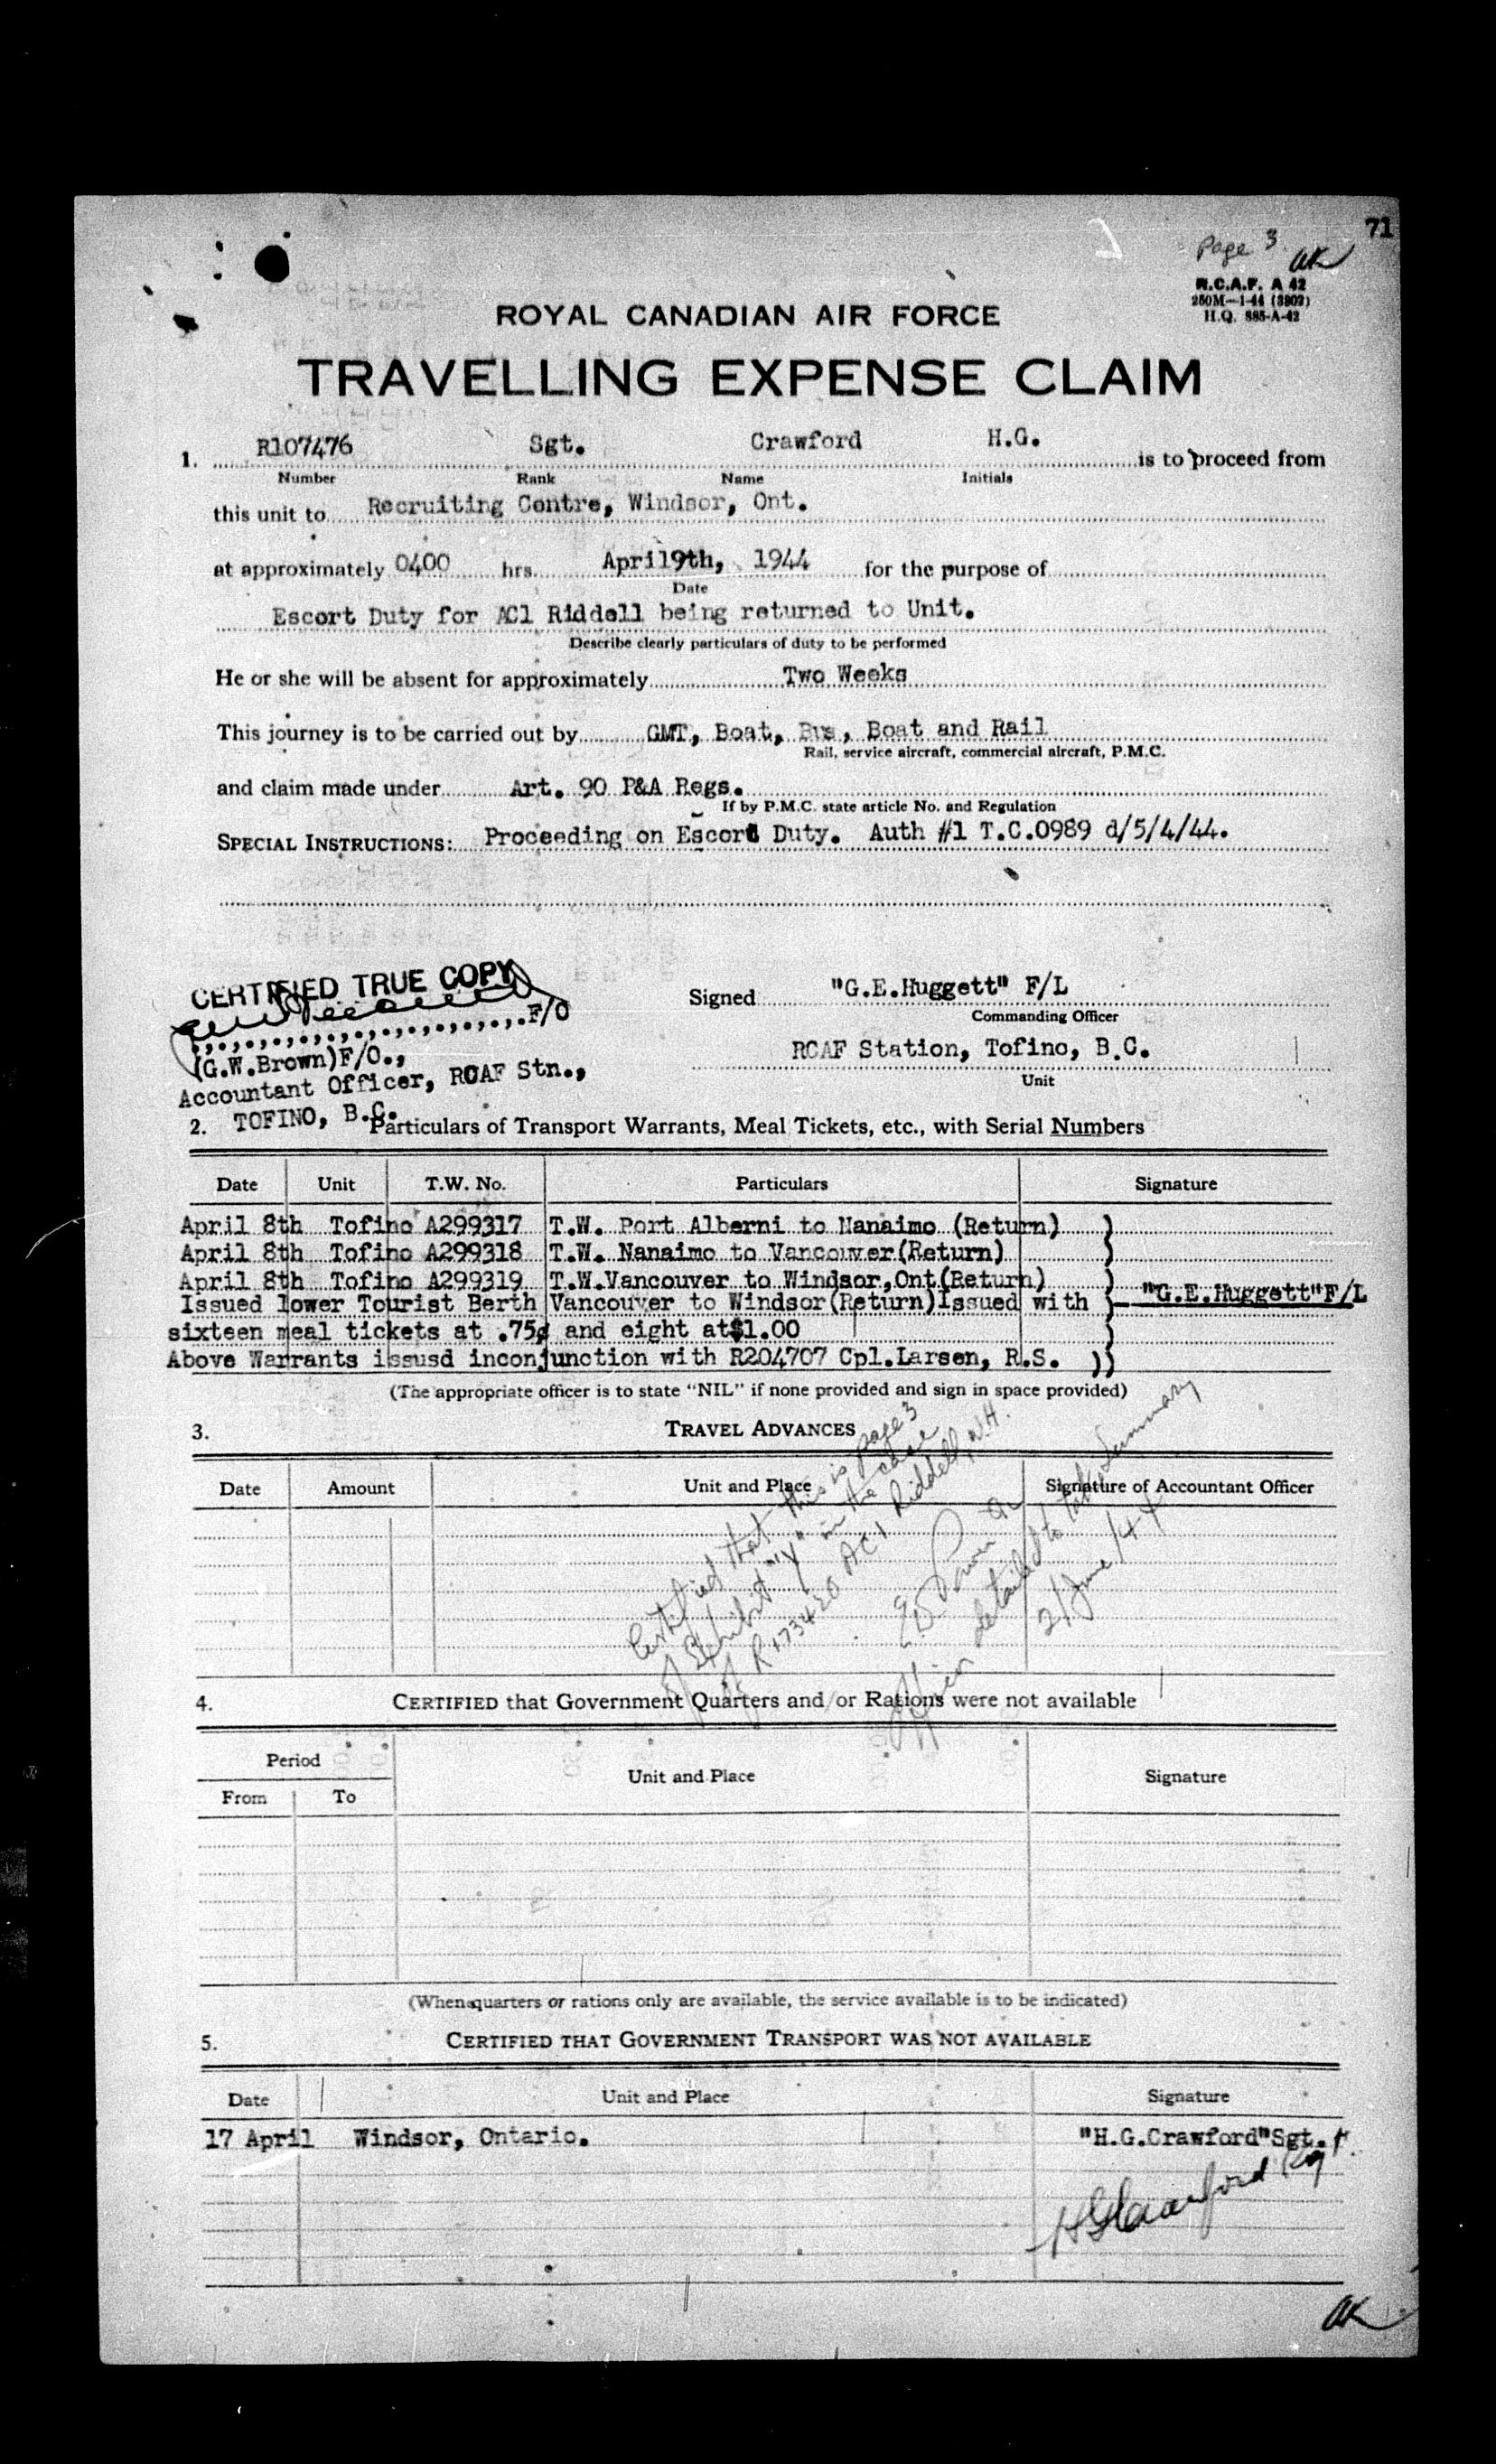 71
Page 3
R.C.A.F. A 42
250M—1-44 (3802)
H.Q. 885-A-42
ROYAL CANADIAN AIR FORCE
TRAVELLING EXPENSE CLAIM
1. R107476 Sgt. Crawford H.G. is to proceed from
Number Rank Name Initials
this unit to Recruiting Centre, Windsor, Ont.
at approximately 0400 hrs. April9th, 1944 for the purpose of
Date
Escort Duty for AC1 Riddell being returned to Unit.
Describe clearly particulars of duty to be performed
He or she will be absent for approximately Two Weeks
This journey is to be carried out by GMT, Boat, Bus, Boat and Rail
Rail, service aircraft, commercial aircraft, P.M.C.
and claim made under Art. 90 P&A Regs.
If by P.M.C. state article No. and Regulation
SPECIAL INSTRUCTIONS: Proceeding on Escort Duty. Auth #1 T.C.0989 d/5/4/44.
CERTIFIED TRUE COPY
F/O
(G.W.Brown)F/O.,
Accountant Officer, RCAF Stn.,
TOFINO, B.C.
Signed "G.E.Huggett" F/L
Commanding Officer
RCAF Station, Tofino, B.C.
Unit
2. Particulars of Transport Warrants, Meal Tickets, etc., with Serial Numbers
Date Unit T.W. No. Particulars Signature
April 8th Tofino A299317 T.W. Port Alberni to Nanaimo (Return) )
April 8th Tofino A299318 T.W. Nanaimo to Vancouver(Return) )
April 8th Tofino A299319 T.W.Vancouver to Windsor,Ont(Return) )
Issued lower Tourist Berth Vancouver to Windsor(Return)Issued with ) "G.E.Huggett"F/L
sixteen meal tickets at .75¢ and eight at$1.00 )
Above Warrants issusd inconjunction with R204707 Cpl.Larsen, R.S. ))
(The appropriate officer is to state "NIL" if none provided and sign in space provided)
3. TRAVEL ADVANCES
Date Amount Unit and Place Signature of Accountant Officer
Certified that this is page 3
of Exhibit "Y" in the case
of R173420 AC1 Riddell, W.H.
Officer detailed to take Summary
21 June /44
4. CERTIFIED that Government Quarters and/or Rations were not available
Period Unit and Place Signature
From To
(When quarters or rations only are available, the service available is to be indicated)
5. CERTIFIED THAT GOVERNMENT TRANSPORT WAS NOT AVAILABLE
Date Unit and Place Signature
17 April Windsor, Ontario. "H.G.Crawford"Sgt.
HGCrawford Sgt